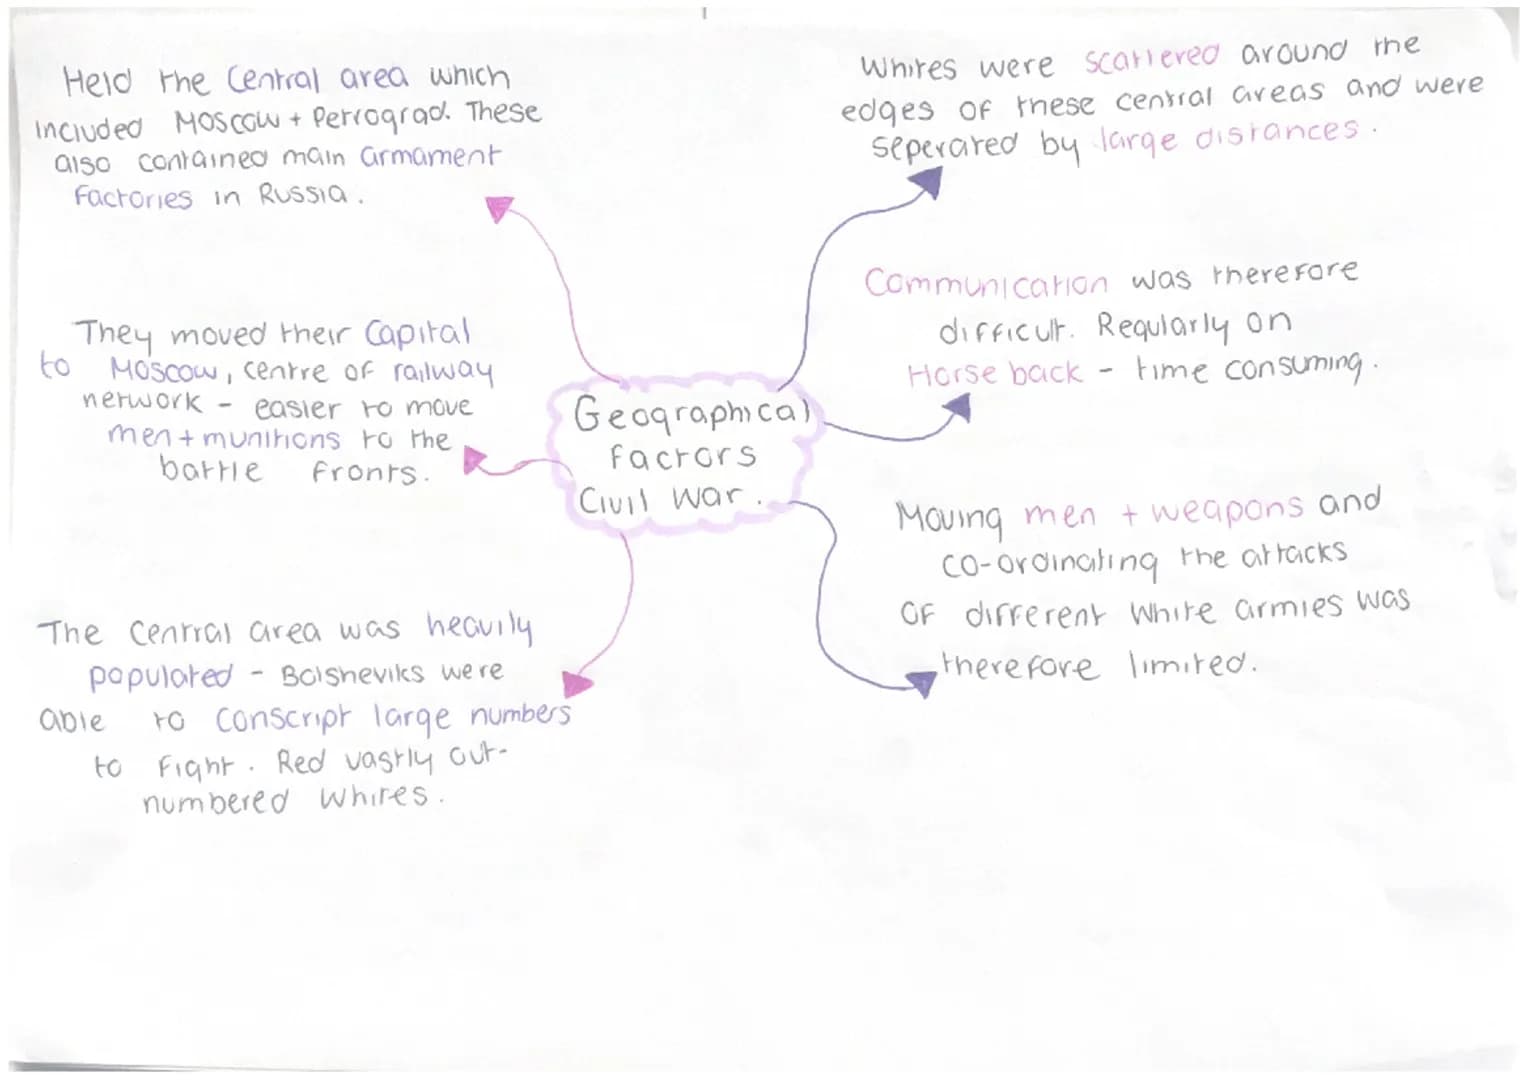 Held the Central area which
included Moscow + Petrograd. These
also contained main armament
factories in Russia.
They moved their Capital
to Moscow, centre of railway
network - easier to move
men + munitions to the
battle fronts.
The Central area was heavily
populated - Bolsheviks were
able to conscript large numbers
to fight. Red vastly out-
numbered Whites.
Geographical
factors
Civil War.
Whites were scattered around the
edges of these central areas and were
seperated by large distances.
Communication was therefore
difficult. Regularly on
Horse back - time consuming.
Moving men + weapons and
co-ordinating the attacks
of different White armies was
therefore limited.